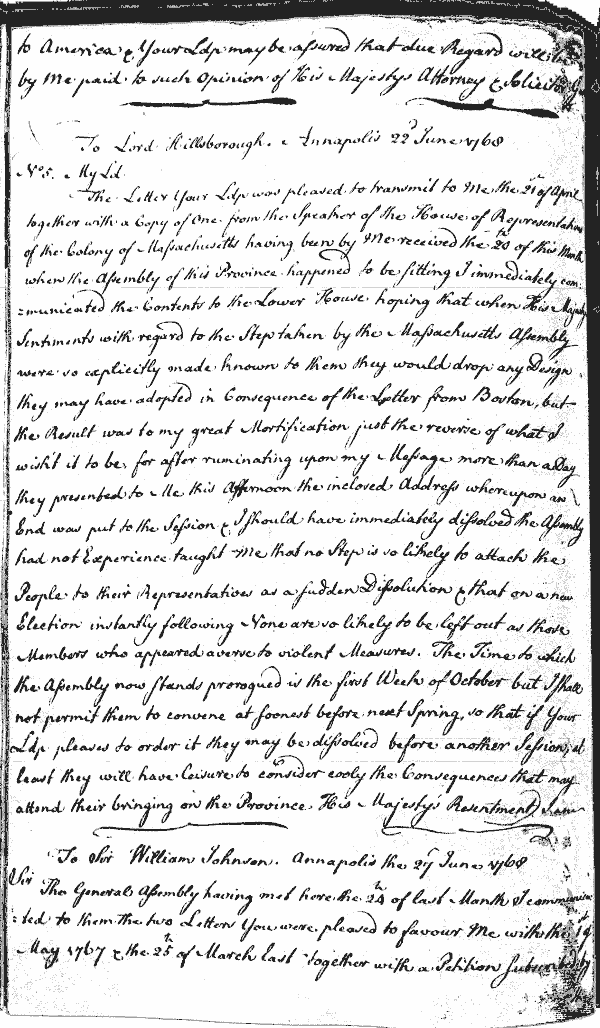 to America & Your Ldp may be assured that due Regard will be
by Me paid to such Opinion of His Majestys Attorney & Solicitor
To Lord Hillsborough. Annapolis 22d June 1768
No 5. My Ld.
The Letter Your Ldp was pleased to transmit to Me the 21st of April
together with a Copy of One from the Speaker of the House of Representatives
of the Colony of Massachusetts having been by Me received the 20th of this Month
when the Assembly of this Province happened to be sitting I immediately com
=municated the Contents to the Lower House hoping that when His Majestys
Sentiments with regard to the Step taken by the Massachusetts Assembly
were so explicitly made known to them they would drop any Design
they may have adopted in Consequence of the Letter from Boston, but
the Result was to my great Mortification just the reverse of what I
wisht it to be, for after ruminating upon my Message more than a Day
they presented to Me this Afternoon the inclosed Address whereupon an
End was put to the Session & I should have immediately dissolved the Assembly
had not Experience taught Me that no Step is so likely to attach the
People to their Representatives as a sudden Dissolution & that on a new
Election instantly following None are so likely to be left out as those
Members who appeared averse to violent Measures. The Time to which
the Assembly now stands prorogued is the first Week of October but I shall
not permit them to convene at soonest before next Spring, so that if Your
Ldp pleases to order it they may be dissolved before another Session, at
least they will have leisure to consider cooly the Consequences that may
attend their bringing on the Province His Majesty's Resentment, I am
To Sir William Johnson. Annapolis the 27th June 1768
Sir
The General Assembly having met here the 24th of last Month I communica
=ted to them the two Letters You were pleased to favour Me with the
May 1767 & the 25th of March last together with a Petition subscribed by